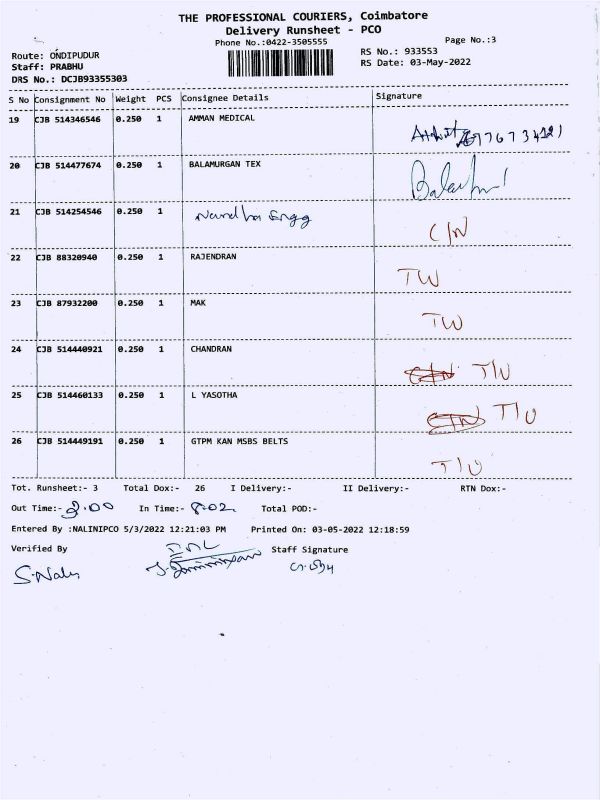 THE PROFESSIONAL COURIERS, Coimbatore
Delivery Runsheet - PCO
Phone No.:0422-3505555
Page No.:3
Route: ONDIPUDUR
RS No.: 933553
Staff: PRABHU
RS Date: 03-May-2022
DRS No.: DCJB93355303
S No Consignment No Weight PCS Consignee Details Signature
19 CJB 514346546 0.250 1 AMMAN MEDICAL
20 CJB 514477674 0.250 1 BALAMURGAN TEX
21 CJB 514254546 0.250 1 Nandha Engg C/N
22 CJB 88320940 0.250 1 RAJENDRAN TW
23 CJB 87932200 0.250 1 MAK TW
24 CJB 514440921 0.250 1 CHANDRAN T/U
25 CJB 514460133 0.250 1 L YASOTHA T/U
26 CJB 514449191 0.250 1 GTPM KAN MSBS BELTS T/U
Tot. Runsheet:- 3 Total Dox:- 26 I Delivery:- II Delivery:- RTN Dox:-
Out Time:- 2.00 In Time:- 8.02 Total POD:-
Entered By :NALINIPCO 5/3/2022 12:21:03 PM Printed On: 03-05-2022 12:18:59
Verified By Staff Signature